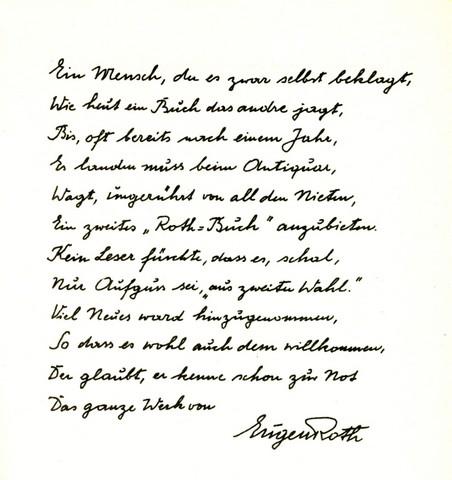 Ein Mensch, der es zwar selbst beklagt,
Wie heut ein Buch das andre jagt,
Bis, oft bereits nach einem Jahr,
Es landen muss beim Antiquar,
Wagt, ungerührt von all den Nieten,
Ein zweites „Roth=Buch" anzubieten.
Kein Leser fürchte, dass es, schal,
Nur Aufguss sei, „aus zweiter Wahl."
Viel Neues ward hinzugenommen,
So dass es wohl auch dem willkommen,
Der glaubt, er kenne schon zur Not
Das ganze Werk von
Eugen Roth